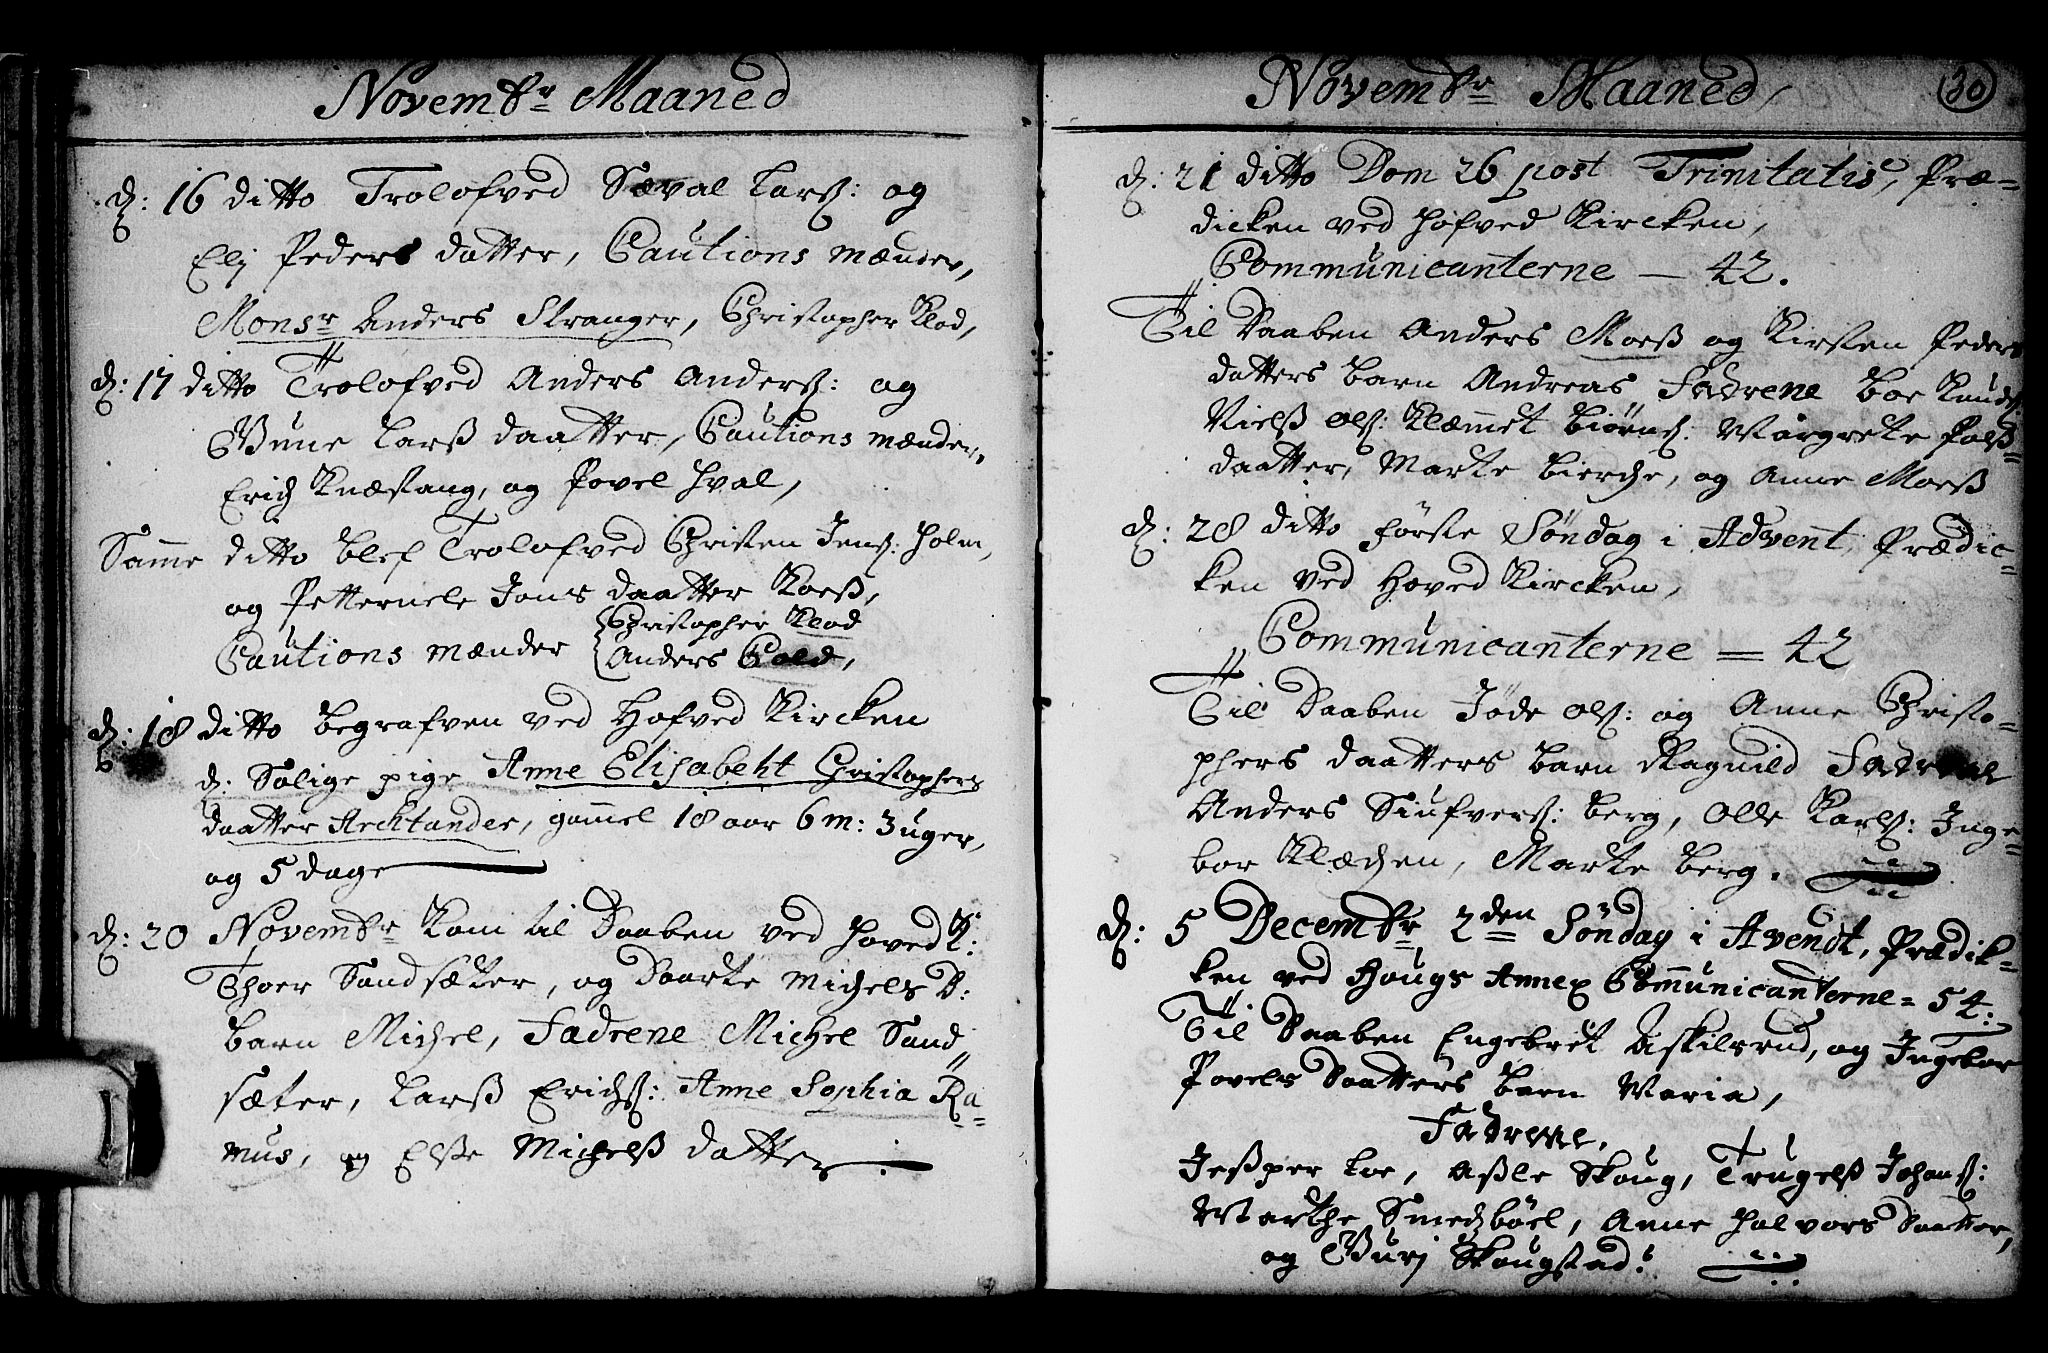 Novembr Maaned
d: 16 ditto Trolofved Sæval Larß: og
Elj Peders datter, Cautions mænder,
Monsr Anders Stranger, Christopher Klod,
d: 17 ditto Trolofved Anders Anderß: og
Gune Larß daatter, Cautions mænder,
Erich Knæstang, og Povel Hval,
Samme ditto blef Trolofved Christen Jenß: Holm,
og Petternele Jens daatter Koeß,
Cautions mænder Christopher Klod
Anders Cold,
d: 18 ditto begrafven ved Hofved Kircken
d: Salige pige Anne Elisabeht Christophers
daatter Arehtander, gammel 18 aar 6 m: 3 uger,
og 5 dage
d: 20 Novembr Kom til Daaben ved Hoved K:
Thoer Sandsæter, og Daarte Michels D:
barn Michel, Fadrene Michel Sand
sæter, Larß Erichß: Anne Sophia Ra=
mus, og Elße Michelß datter
Novembr Maaned 30
d: 21 ditto Dom 26 post Trinitatis, Præ=
dicken ved Hofved Kircken,
Communicanterne — 42.
Til Daaben Anders Moeß og Kirsten Peders
datters barn Andreas, Fadrene boe Knudß:
Nielß Olß: Klæmmet Biørnß: Margrete Polß=
daatter, Marte Bierche, og Anne Moeß
d: 28 ditto første Søndag i Advent, Prædic=
ken ved Hoved Kircken,
Communicanterne = 42
Til Daaben Jöde Olß: og Anne Christo=
phers daatters barn Ragnild Fadrene
Anders Siufverß: berg, Olle Karlß: Inge=
bor Klæchen, Marte berg.
d: 5 Decembr 2den Søndag i Avendt, Prædik=
ken ved Hougs Annex Communicanterne = 54:
Til Daaben Engebret Askilsrud, og Ingebor
Povels Daatters barn Maria,
Fadrene,
Jeßper Loe, Aßle Skoug, Trugelß Johanß:
Marthe Smedzbøel, Anne Halvors Daatter,
og Gurj Skougstad: